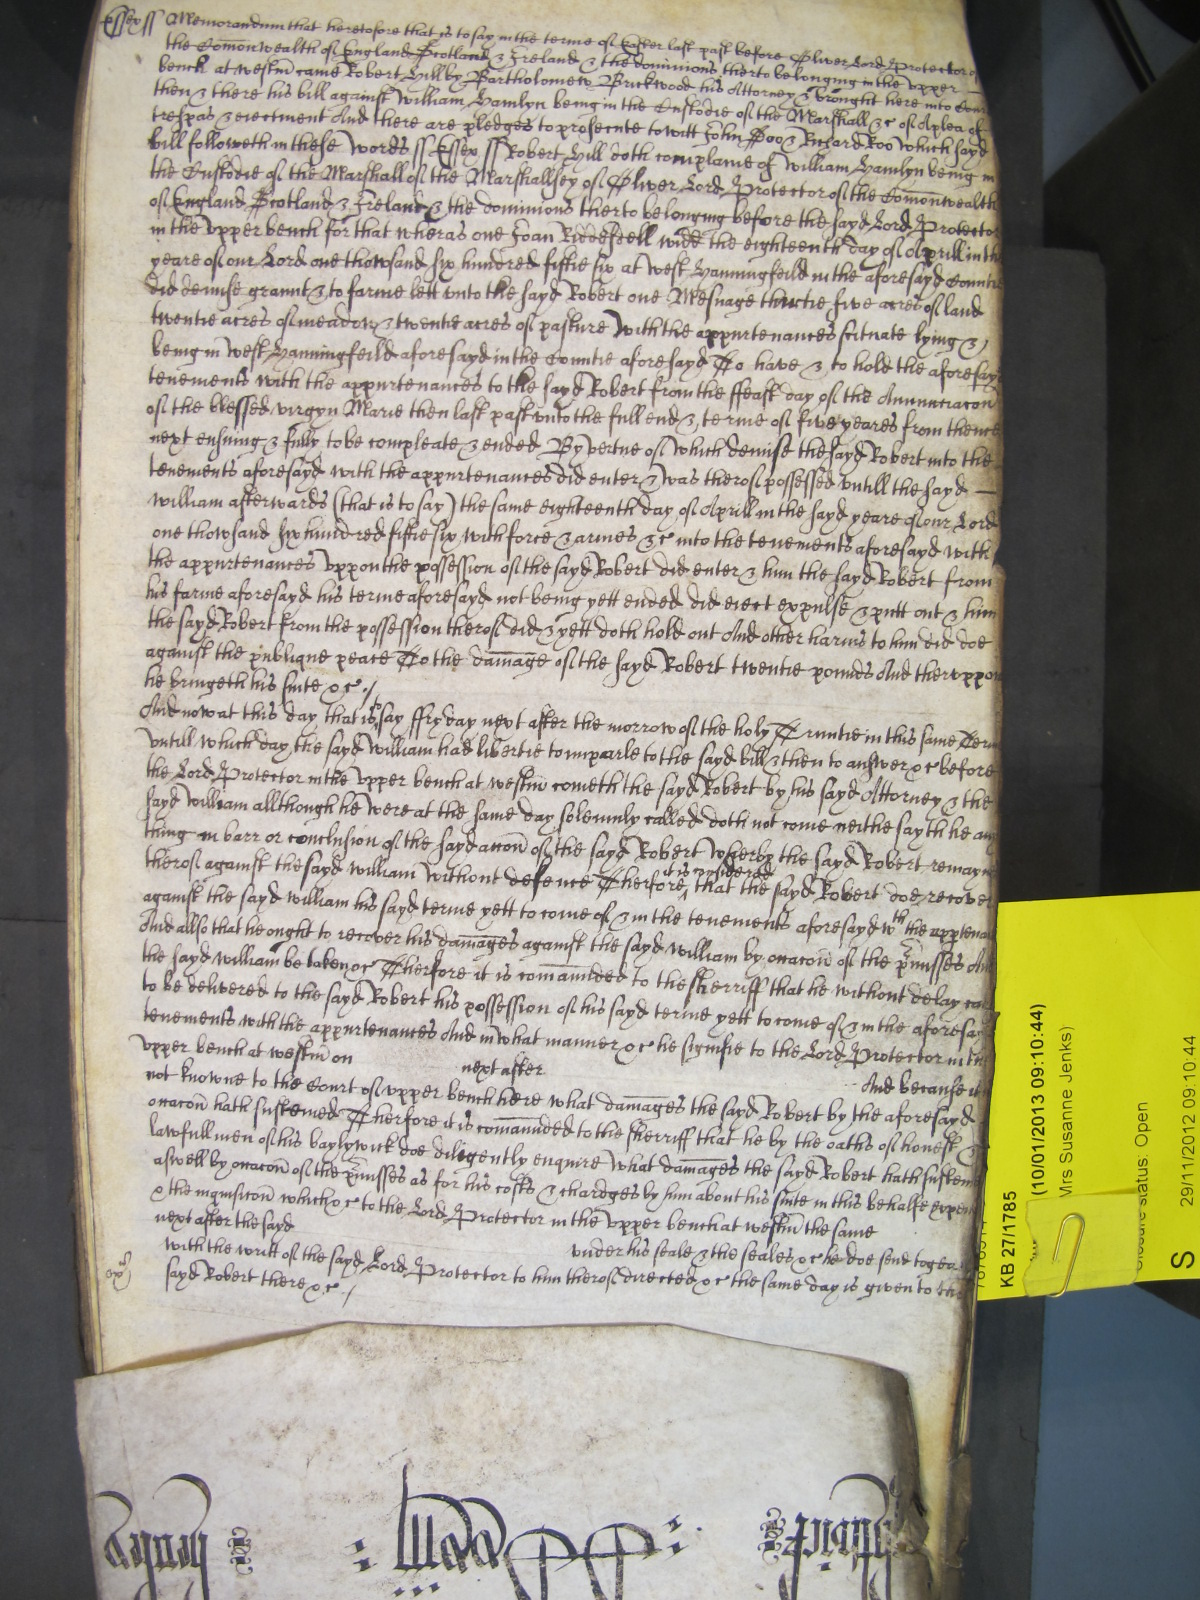 Essex ss Memorandum that heretofore that is to say in the terme of Easter last past before Oliver Lord Protector of
the Com̄onwealth of England Scotland & Ireland & the dominions therto belonging in the upper
bench at westm̄ came Robert Hill by Bartholomew Brickwood his Attorney & brought here into Court
then & there his bill against William Hamlyn being in the Custodie of the Marshall &c of A plea of
trespas & eiectment And there are pledges to prosecute to witt John Doo & Ricard Roo Which sayd
bill followeth in these Words ss Essex ss Robert Hill doth complaine of William Hamlyn being in
the Custodie of the Marshall of the Marshallsey of Oliver Lord Protector of the Com̄onwealth
of England Scotland & Ireland & the dominions therto belonging before the sayd Lord Protector
in the Upper bench for that wheras one Joan widd the eighteenth day of Aprill in the
yeare of our Lord one thowsand six hundred fiftie six at West Hanningfeild in the aforesayd Countie
did demise graunt & to farme lett unto the sayd Robert one Mesuage thirtie five acres of land
twentie acres of meadow & twentie acres of pasture With the appurtenances scituate lying &
being in West Hanningfeild aforesayd in the Countie aforesayd To have & to hold the aforesayd
tenements with the appurtenances to the sayd Robert from the ffeast day of the Annunciacon̄
of the blessed virgyn Marie then last past unto the full end & terme of five yeares from thence
next ensuing & fully to be compleate & ended By vertue of Which demise the sayd Robert into the
tenements aforesayd with the appurtenances did enter & was therof possessed untill the sayd
William afterwards (that is to say) the same eighteenth day of Aprill in the sayd yeare of our Lord
one thowsand six hundred fiftie six with force & armes &c into the tenements aforesayd with
the appurtenances uppon the possession of the sayd Robert did enter & him the sayd Robert from
his farme aforesayd his terme aforesayd not being yett ended did eiect expulse & putt out & him
the sayd Robert from the possession therof did & yett doth hold out And other harms to him did doe
against the publique peace To the dam̄age of the sayd Robert twentie pounds And theruppon
he bringeth his suite &c /
And now at this day that is to say ffryday next after the morrow of the holy Trinitie in this same Terme
untill which day the sayd William had libertie to imparle to the sayd bill & then to answer &c before
the Lord Protector in the Upper bench at westm̄ cometh the sayd Robert by his sayd Attorney & the
sayd William allthough he were at the same day solemnly called doth not come neithe sayth he any
thing in barr or conclusion of the sayd accon̄ of the sayd Robert Wherby the sayd Robert remayns
therof against the sayd William without defence Therfore it is considered that the sayd Robert doe recover
against the sayd William his sayd terme yett to come of & in the tenements aforesayd wth the appurtenances
And allso that he ought to recover his dam̄ages against the sayd William by occacon̄ of the p̄misses And
the sayd William be taken &c Therfore it is com̄aunded to the sherriff that he without delay cause
to be delivered to the sayd Robert his possession of his sayd terme yett to come of & in the aforesayd
tenements with the appurtenances And in what manner &c he signifie to the Lord Protector in the
Upper bench at westm̄ on next after And because it is
not knowne to the Court of upper bench here what dam̄ages the sayd Robert by the aforesayd
occacon̄ hath susteined Therfore it is com̄aunded to the sherriff that he by the oaths of honest &
lawfull men of his baylywick doe diligently enquire What dam̄ages the sayd Robert hath susteined
aswell by occacon̄ of the p̄misses as for his costs & chardges by him about his suite in this behalfe expended
& the inquisicon̄ which &c to the Lord Protector in the Upper bench at westm̄ the same
next after the sayd under his seale & the seales &c he doe send togea
with the writt of the sayd Lord Protector to him therof directed &c the same day is given to the
sayd Robert there &c /
KB 27/1785
(10/01/2013 09:10:44)
Mrs Susanne Jenks)
Closure status: Open
S 29/11/2012 09:10:44